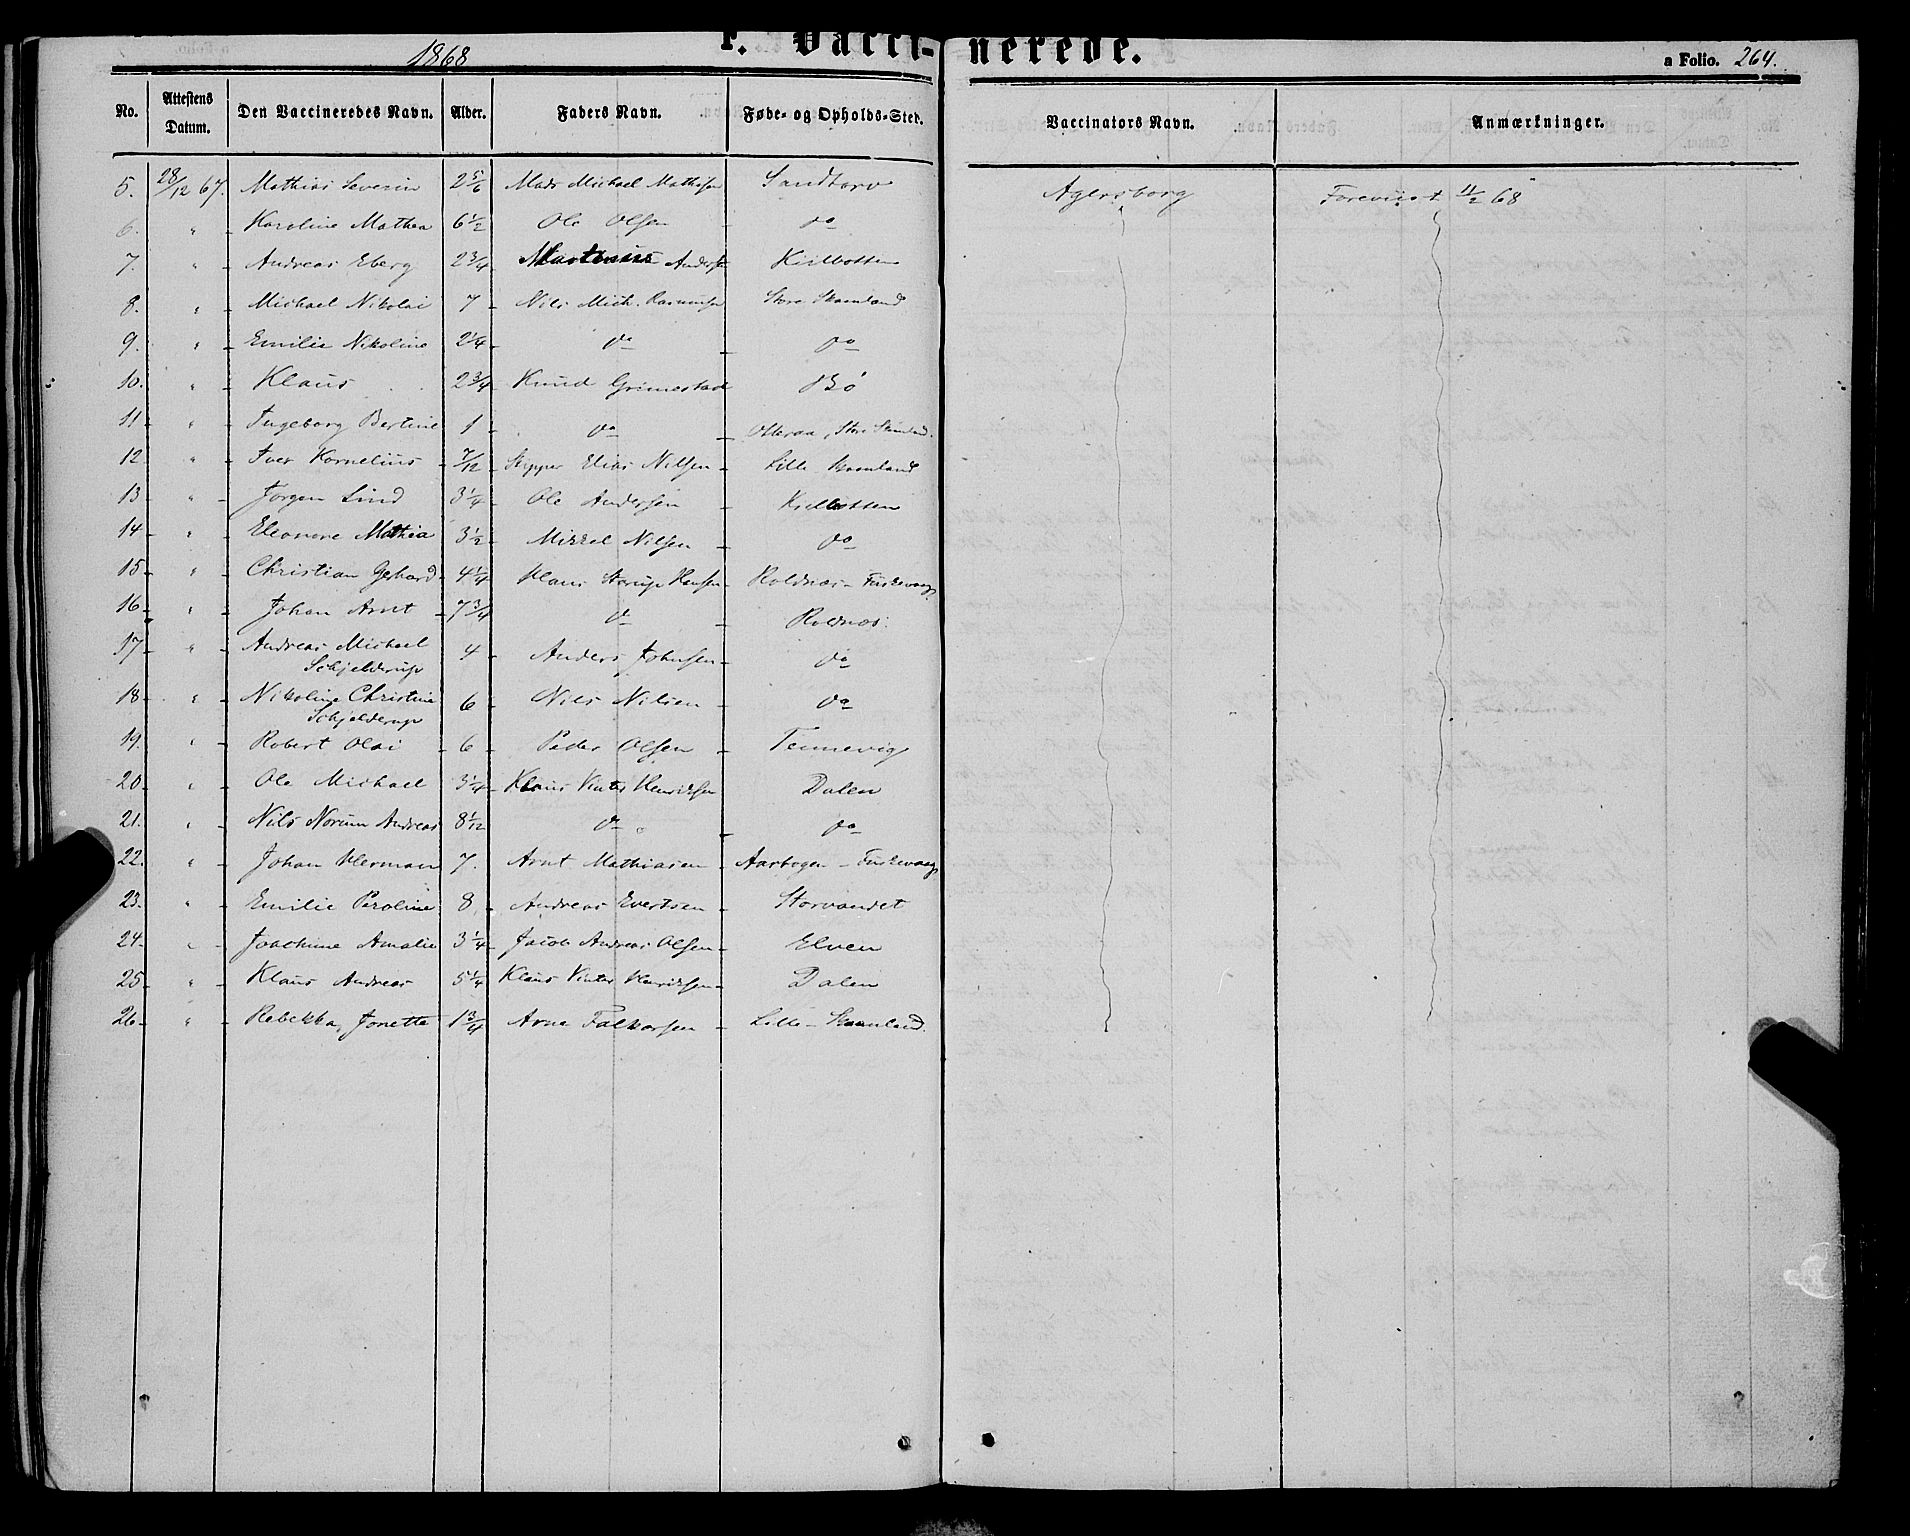 1868
F. Vacci-nerede.
a Folio. 264.
No. Attestens Datum. Den Vaccineredes Navn. Alder. Faders Navn. Føde- og Opholds-Sted. Vaccinators Navn. Anmærkninger.
5. 28/12 67. Mathias Severin 2 5/6 Mads Michael Mathisen Sandtorv Agersborg Foreviist 11/2 68
6. " Karoline Mathea 6 1/2 Ole Olsen do
7. " Andreas Eberg 2 3/4 Martinus Andersen Kiilbotten
8. " Michael Nikolai 7 Nils Mich. Rasmusen Store Skaanland
9. " Emilie Nikoline 2 1/4 do do
10. " Klaus 2 3/4 Knud Grimestad Bö
11 " Ingeborg Bertine 1 do Otteraa, Store Skaanland.
12 " Iver Kornelius 7/12 Skipper Elias Nilsen Lille Skaanland
13 " Jörgen Lind 3 1/4 Ole Andersen Kiilbotten
14 " Eleonore Mathia 3 1/2 Mikkel Nilsen do
15 " Christian Gerhard 4 1/4 Klaus Storup Hansen Roldnæs - Finskevaag
16 " Johan Arnt 7 3/4 do Roldnæs.
17 " Andreas Michael 4 Anders Johnsen do
Schjelderup
18 " Nikoline Christine 6 Nils Nilsen do
Schjelderup
19. " Robert Olai 6 Peder Olsen Tennevig
20. " Ole Michael 3 1/4 Klaus Vinter Henriksen Dalen
21. " Nils Norum Andreas 8 1/12 do do
22. " Johan Herman 7. Arnt Mathiasen Aarbogen - Finskevaag
23. " Emilie Peroline 8 Andreas Evertsen Storvandet
24. " Joachime Amalie 3 1/4 Jacob Andreas Olsen Elven
25 " Klaus Andreas 5 1/4 Klaus Vinter Henriksen Dalen
26 " Rebekka Jonette 1 3/4 Arne Falkorsen Lille - Skaanland.